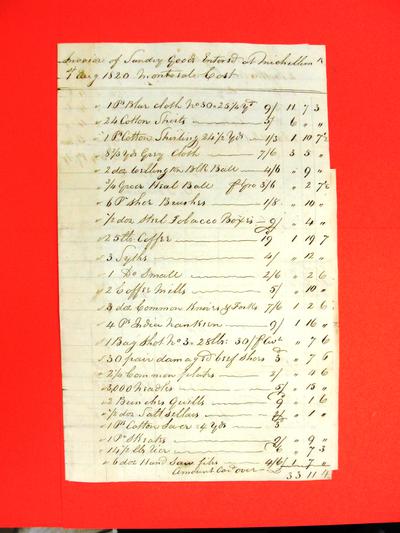 Invoice of Sundry Goods Entered at Michillim
1 Aug 1820 Montreal Cost
" 1 Ps Blue Cloth No 30 - 25¼ Yds 9/ 11 7 3
" 24 Cotton Shirts 5/ 6 " "
" 1 Ps Cotton Shirting 24½ Yds 1/3 1 10 7½
8½ yds Grey Cloth 7/6 3 3 "
" 2 doz Wellington Balls 4/6 " 9 "
Heel Ball 3/6 " 2 7½
" 6 Ps Shoe Brushes 1/8 " 10 "
" ½ doz Steel Tobacco Boxes 9/ " 4 "
" 25 lb Coffee 19 1 19 7
" 3 Syths 4/ " 12 "
" 1 Do Small 2/6 " 2 6
" 2 Coffee Mills 5/ " 10 "
" 3 doz Common Knives & Forks 7/6 1 2 6
" 4 Ps India Nankeen 9/ 1 16 "
" 1 Bag Shot No 3 - 28 lbs 30/ " 7 6
" 30 pair damag'd Shoes 3 " 7 6
" 2/ " 4 6
" 3,000 Needles 5/ " 15 "
" 2 Bunches Quills 9 " 1 6
" ½ doz Salt Sellars 2/ " 1 "
" 1 Ps Cotton 4 Yds
" 1 Ps 2/ " 9 "
" " 7 3
" 6 doz Hand Saw files 4/6 1 7 "
Amount Car'd over 33 11 4